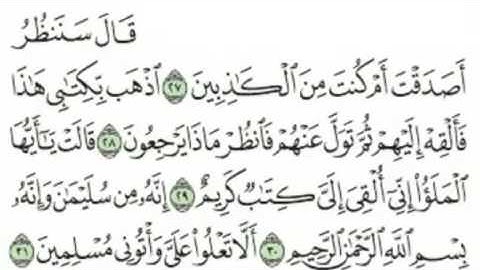 قَالَ سَنَنظُرُ
أَصَدَقْتَ أَمْ كُنتَ مِنَ الْكَاذِبِينَ ٢٧ اذْهَب بِّكِتَابِي هَاذَا
فَأَلْقِهْ إِلَيْهِمْ ثُمَّ تَوَلَّ عَنْهُمْ فَانظُرْ مَاذَا يَرْجِعُونَ ٢٨ قَالَتْ يَا أَيُّهَا
الْمَلَؤُا إِنِّي أُلْقِيَ إِلَيَّ كِتَابٌ كَرِيمٌ ٢٩ إِنَّهُ مِن سُلَيْمَانَ وَإِنَّهُ
بِسْمِ اللَّهِ الرَّحْمَٰنِ الرَّحِيمِ ٣٠ أَلَّا تَعْلُوا عَلَيَّ وَأْتُونِي مُسْلِمِينَ ٣١